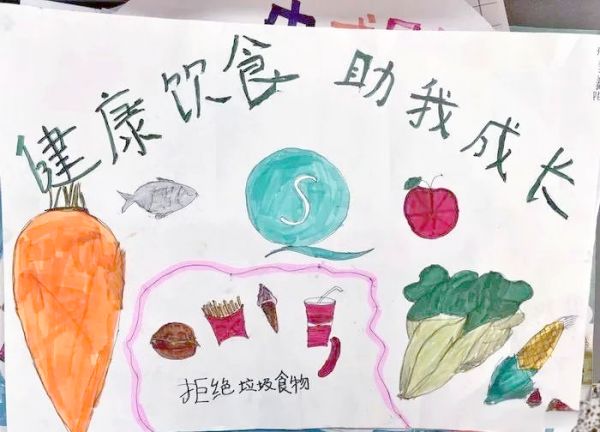 健康饮食 助我成长
S
拒绝垃圾食物